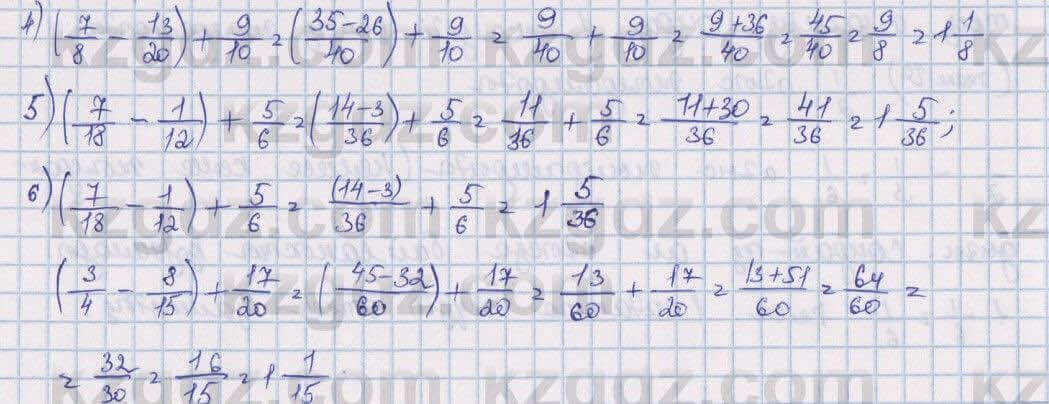 4) (7/8 - 13/20) + 9/10 = (35-26/40) + 9/10 = 9/40 + 9/10 = 9+36/40 = 45/40 = 9/8 = 1 1/8
5) (7/18 - 1/12) + 5/6 = (14-3/36) + 5/6 = 11/36 + 5/6 = 11+30/36 = 41/36 = 1 5/36;
6) (7/18 - 1/12) + 5/6 = (14-3)/36 + 5/6 = 1 5/36
(3/4 - 8/15) + 17/20 = (45-32/60) + 17/20 = 13/60 + 17/20 = 13+51/60 = 64/60 =
= 32/30 = 16/15 = 1 1/15
kzgdz.com